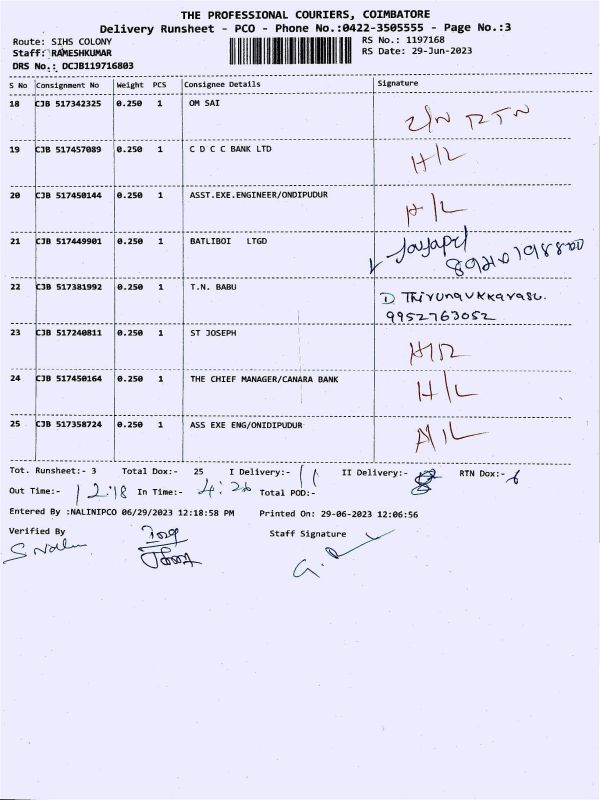 THE PROFESSIONAL COURIERS, COIMBATORE
Delivery Runsheet - PCO - Phone No.:0422-3505555 - Page No.:3
Route: SIHS COLONY
RS No.: 1197168
Staff: RAMESHKUMAR
RS Date: 29-Jun-2023
DRS No.: DCJB119716803
S No Consignment No Weight PCS Consignee Details Signature
18 CJB 517342325 0.250 1 OM SAI
RTN
19 CJB 517457089 0.250 1 C D C C BANK LTD
H/L
20 CJB 517450144 0.250 1 ASST.EXE.ENGINEER/ONDIPUDUR
H/L
21 CJB 517449901 0.250 1 BATLIBOI LTGD
22 CJB 517381992 0.250 1 T.N. BABU
D Thirunavukkarasu.
9952763052
23 CJB 517240811 0.250 1 ST JOSEPH
24 CJB 517450164 0.250 1 THE CHIEF MANAGER/CANARA BANK
H/L
25 CJB 517358724 0.250 1 ASS EXE ENG/ONIDIPUDUR
Tot. Runsheet:- 3 Total Dox:- 25 I Delivery:- 11 II Delivery:- 8 RTN Dox:- 6
Out Time:- 12:18 In Time:- 4:26 Total POD:-
Entered By :NALINIPCO 06/29/2023 12:18:58 PM Printed On: 29-06-2023 12:06:56
Verified By Staff Signature